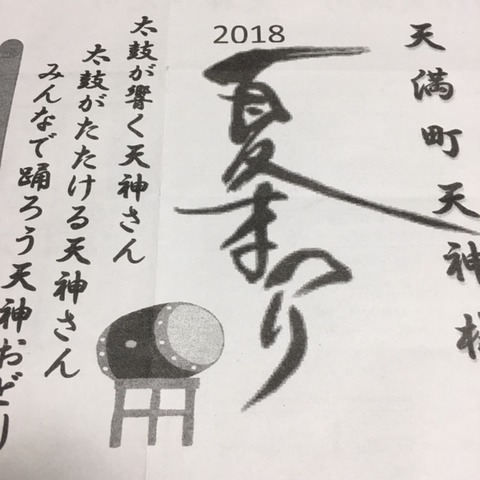 天満町天神様
2018
夏まつり
太鼓が響く天神さん
太鼓がたたける天神さん
みんなで踊ろう天神おどり